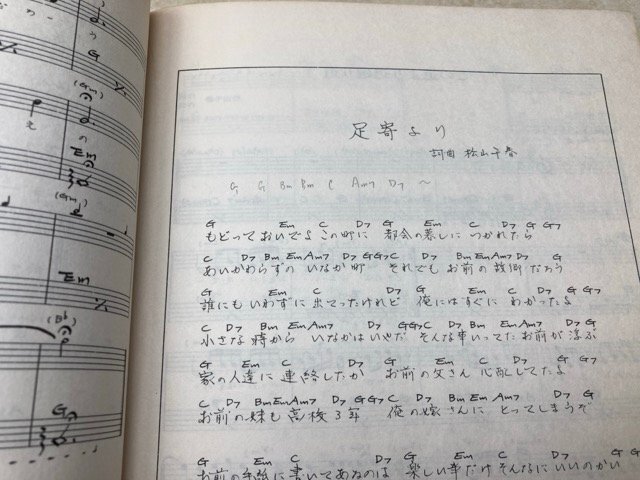 足寄より
詞曲 松山千春
G G Bm Bm C Am7 D7 ~
G Em C D7 G Em C D7 G G7
もどっておいでよこの町に 都会の暮しに つかれたら
C D7 Bm Em Am7 D7 G G7 C D7 Bm Em Am7 D7 G
あいかわらずの いなか町 それでも お前の 故郷だろう
G Em C D7 G Em C D7 G G7
誰にも いわずに 出てったけれど 俺にはすぐに わかったよ
C D7 Bm Em Am7 D7 G G7 C D7 Bm Em Am7 D7 G
小さな 時から いなかは いやだ そんな事いってた お前が 浮ぶ
G Em C D7 G Em C D7 G G7
家の人達に 連絡したか お前の 父さん 心配してたよ
C D7 Bm Em Am7 D7 G G7 C D7 Bm Em Am7 D7 G
お前の妹も 高校3年 俺の 嫁さんに とってしまうぞ
G Em C D7 G Em C D7 G G7
お前の手紙に 書いてあるのは 楽しい事だけ そんなに いいのかい
G
(Gm)
Em
(Gm)
Em
(B♭)